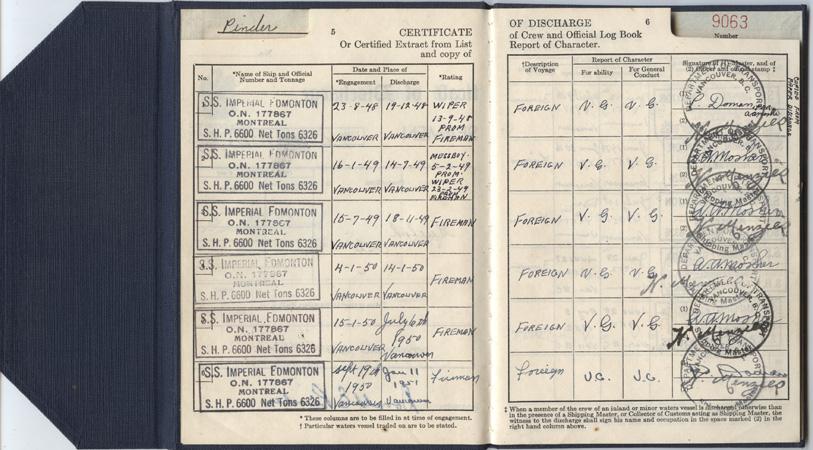 Pinder
5
CERTIFICATE
Or Certified Extract from List
and copy of
No.
*Name of Ship and Official
Number and Tonnage
Date and Place of
*Engagement
Discharge
*Rating
S.S. IMPERIAL EDMONTON
O.N. 177867
MONTREAL
S. H. P. 6600 Net Tons 6326
23-8-48
19-12-48
VANCOUVER
VANCOUVER
WIPER
13-9-48
PROM
FIREMAN
S.S. IMPERIAL EDMONTON
O.N. 177867
MONTREAL
S. H. P. 6600 Net Tons 6326
16-1-49
14-7-49
VANCOUVER
VANCOUVER
MESSBOY
5-2-49
PROM
WIPER
FIREMAN
S.S. IMPERIAL EDMONTON
O.N. 177867
MONTREAL
S. H. P. 6600 Net Tons 6326
15-7-49
18-11-49
VANCOUVER
VANCOUVER
FIREMAN
S.S. IMPERIAL EDMONTON
O.N. 177867
MONTREAL
S. H. P. 6600 Net Tons 6326
4-1-50
14-1-50
VANCOUVER
VANCOUVER
FIREMAN
S.S. IMPERIAL EDMONTON
O.N. 177867
MONTREAL
S. H. P. 6600 Net Tons 6326
15-1-50
July 6th
1950
VANCOUVER
Vancouver
FIREMAN
S.S. IMPERIAL EDMONTON
O.N. 177867
MONTREAL
S. H. P. 6600 Net Tons 6326
Sept 19th
1950
Jan 11
1951
Vancouver
Vancouver
Fireman
* These columns are to be filled in at time of engagement.
† Particular waters vessel traded on are to be stated.
OF DISCHARGE
6
9063
Number
of Crew and Official Log Book
Report of Character.
†Description
of Voyage
Report of Character
For ability
For General
Conduct
FOREIGN V. G. V. G.
FOREIGN V. G. V. G.
FOREIGN V. G. V. G.
FOREIGN V. G. V. G.
FOREIGN V. G. V. G.
Foreign V.G. V.G.
DEPARTMENT OF TRANSPORT
VANCOUVER, B. C.
Shipping Master
A.W. Mosher
H. Menzies
‡ When a member of the crew of an inland or minor waters vessel is discharged otherwise than
in the presence of a Shipping Master, or Collector of Customs acting as Shipping Master, the
witness to the discharge shall sign his name and occupation in the space marked (2) in the
right hand column above.